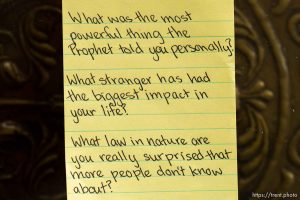 What was the most
powerful thing the
Prophet told you personally?
What stranger has had
the biggest impact in
your life?
What law in nature are
you really surprised that
more people don't know
about?
https://trent.photo